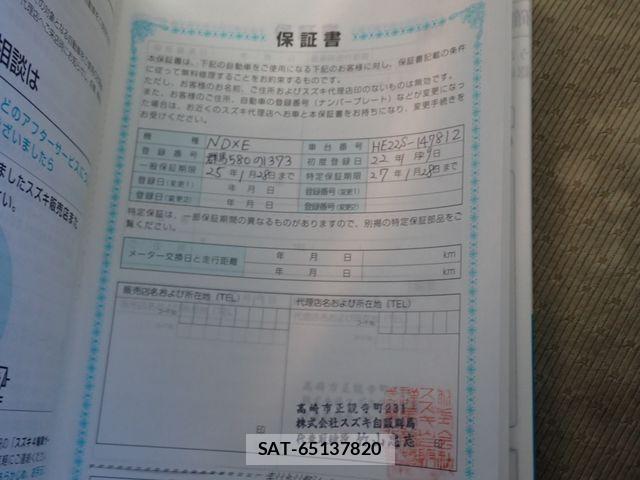 保証書
本保証書は、下記の自動車をご使用になる下記のお客様に対し、保証書記載の条件
に従って無料修理することをお約束するものです。
ただし、お客様のお名前、ご住所およびスズキ代理店印のないものは無効です。
また、お客様のご住所、自動車の登録番号（ナンバープレート）などが変更になっ
た場合は、お近くのスズキ代理店へお車と本保証書をお持ちになり、変更手続きを
お受けください。
機種 NDXE 車台番号 HE22S-147812
登録番号 群馬580の1373 初度登録日 22年1月 日
一般保証期限 25年1月28日まで 特定保証期限 27年1月28日まで
登録日(変更1) 年 月 日 登録番号(変更1)
登録日(変更2) 年 月 日 登録番号(変更2)
特定保証は、一部保証期間の異なるものがありますので、別掲の特定保証部品をご
覧ください。
メーター交換日と走行距離 年 月 日 km
年 月 日 km
販売店名および所在地（TEL） 代理店名および所在地（TEL）
コードNo. コードNo.
高崎市正観寺町231
株式会社スズキ自販群馬
印 印
相談は
どのアフターサービスに
ざいましたら
ましたスズキ販売店また
い。
SAT-65137820